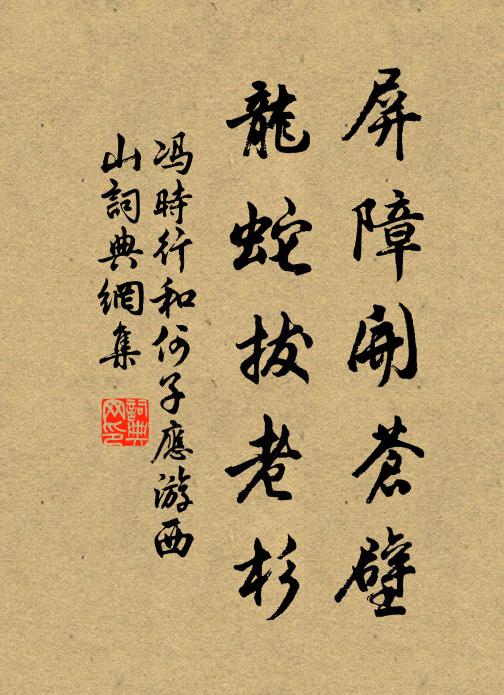 屏障開蒼壁
龍蛇拔老杉
冯時行和何子應游西
山詞典網集
詞典网印